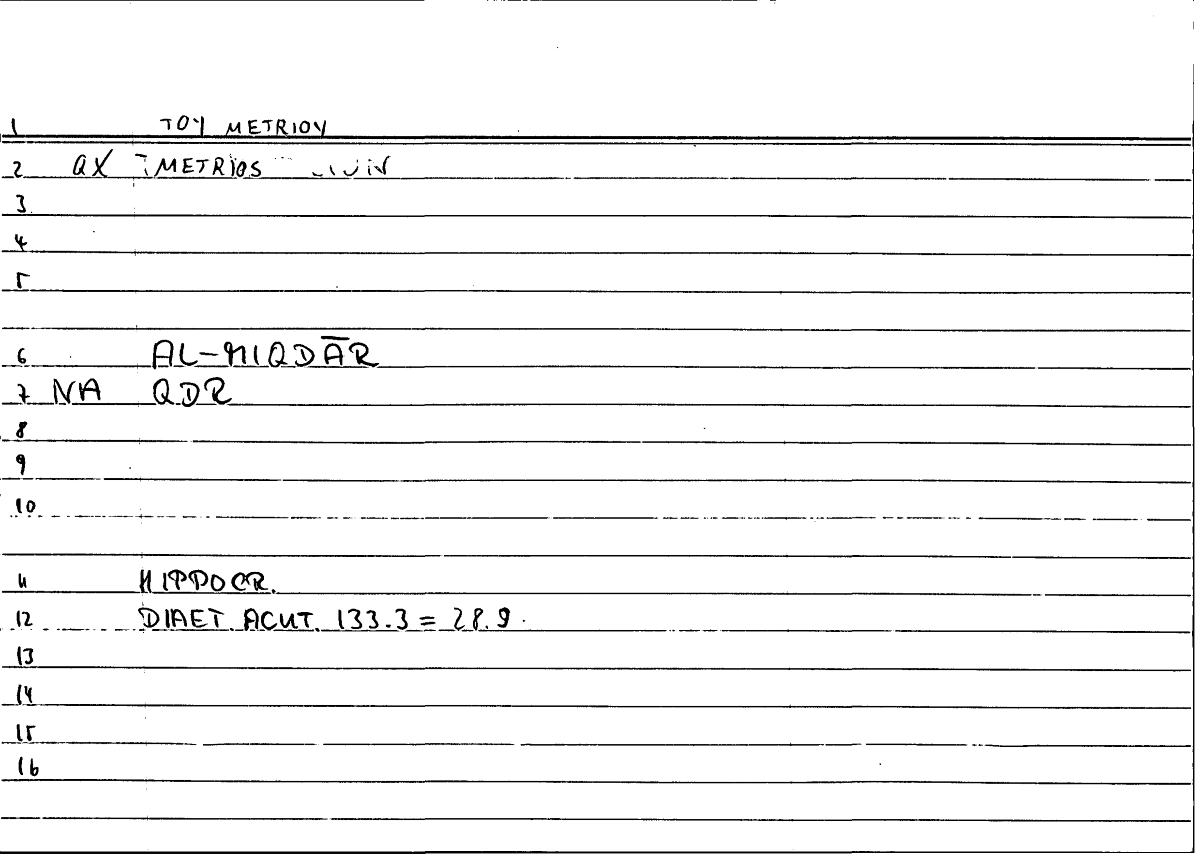 1 TOY METRIOY
2 QX METRIOS
3
4
5
6 AL-MIQDĀR
7 NA QDR
8
9
10
11 HIPPOCR.
12 DIAET. ACUT. 133.3 = 28.9.
13
14
15
16